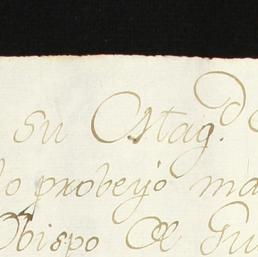 su Mag.d
lo probeyo ma
Obispo de Gu